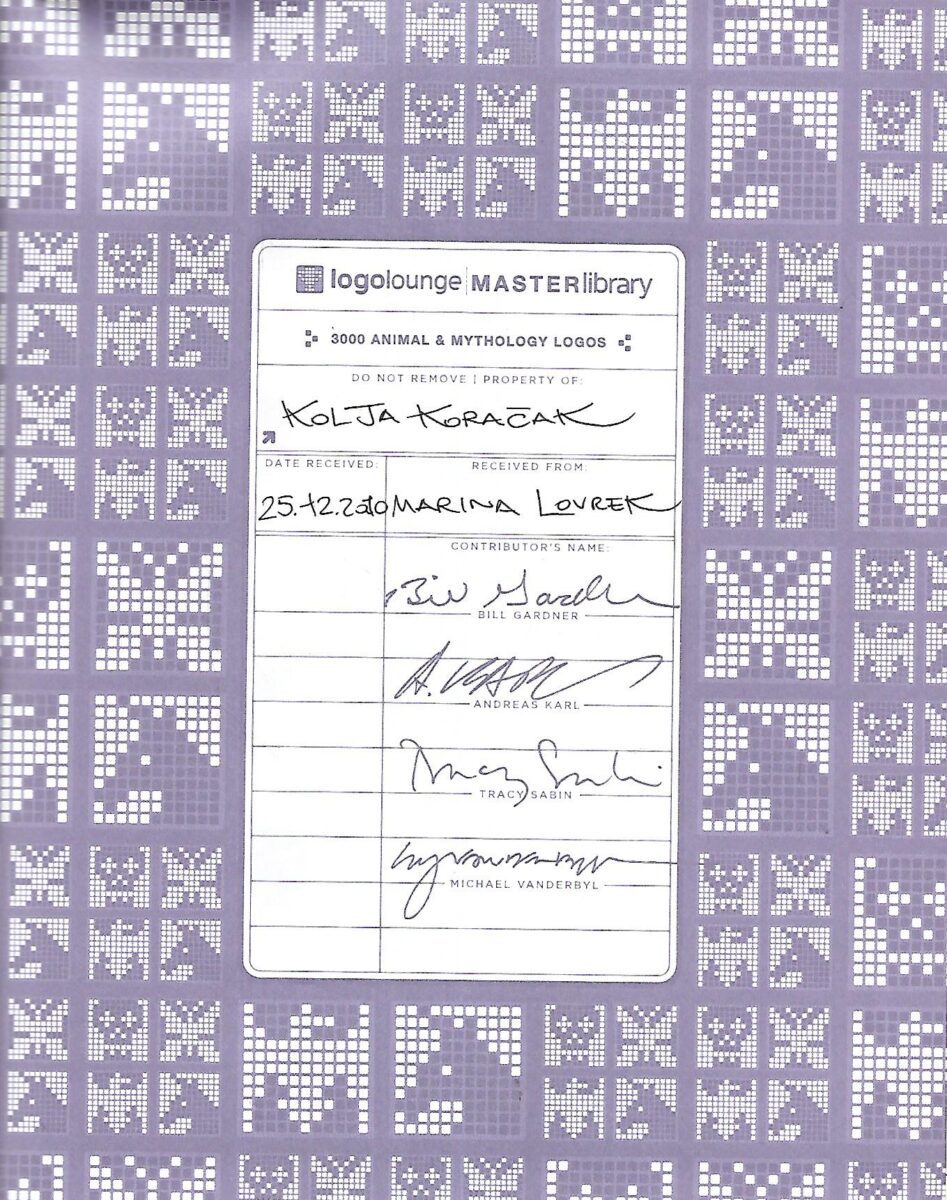 logolounge|MASTERlibrary
3000 ANIMAL & MYTHOLOGY LOGOS
DO NOT REMOVE | PROPERTY OF:
KOLJA KORAČAK
DATE RECEIVED:
RECEIVED FROM:
25.12.2010 MARINA LOVREK
CONTRIBUTOR'S NAME:
Bill Gardner
BILL GARDNER
A. KARL
ANDREAS KARL
Tracy Sabin
TRACY SABIN
MICHAEL VANDERBYL